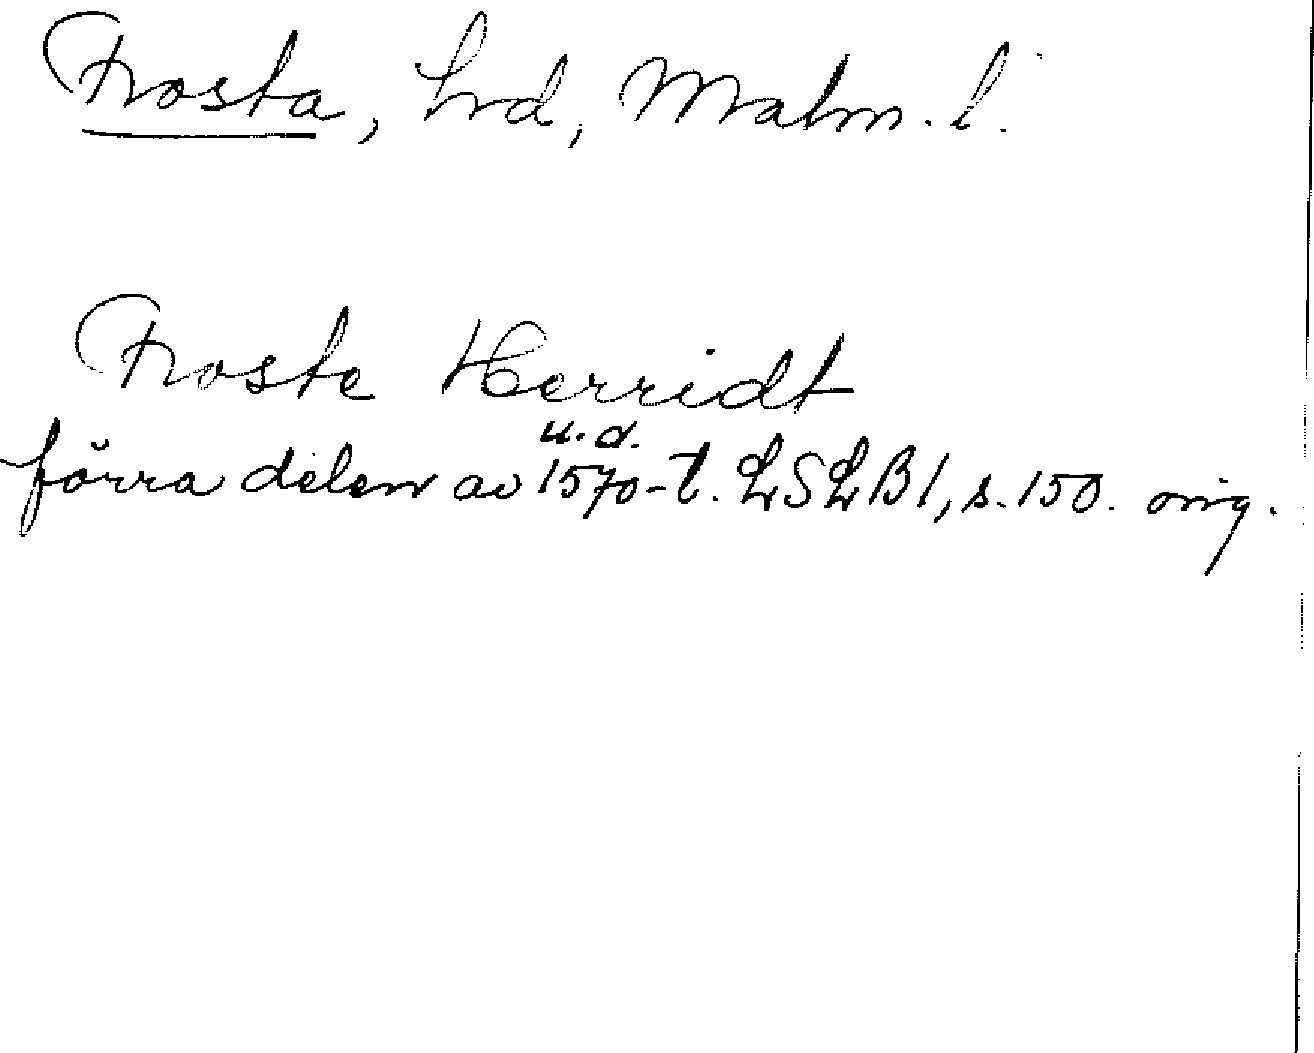 Frosta, hrd, Malm. l.
Froste Herridt
u. d.
förra delen av 1570-t. LSLB 1, s. 150. orig.